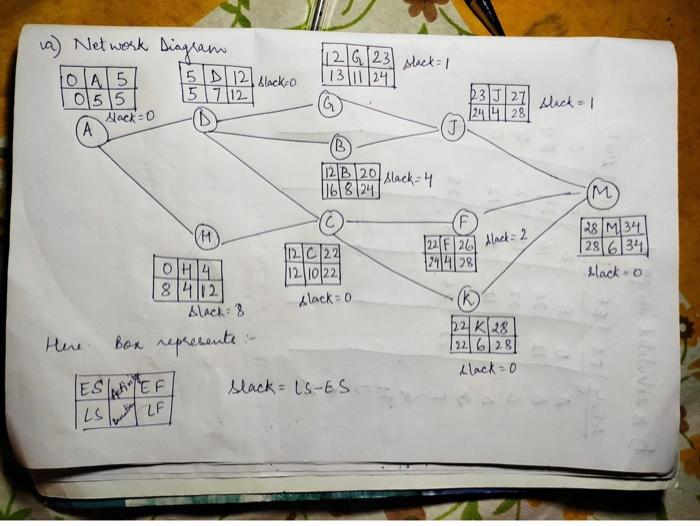 a) Network Diagram
0 A 5
0 5 5
Slack=0
5 D 12
5 7 12
Slack=0
12 G 23
13 11 24
Slack=1
23 J 27
24 4 28
Slack=1
A
D
G
B
J
12 B 20
16 8 24
Slack=4
M
28 M 34
28 6 34
Slack=0
H
C
F
0 H 4
8 4 12
Slack=8
12 C 22
12 10 22
Slack=0
22 F 26
24 4 28
Slack=2
K
22 K 28
22 6 28
Slack=0
Here Box represents :-
ES Activity EF
LS Duration LF
Slack = LS-ES